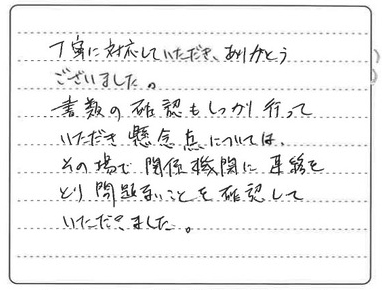 丁寧に対応していただき、ありがとう
ございました。
書類の確認もしっかり行って
いただき懸念点については、
その場で関係機関に連絡を
とり問題ないことを確認して
いただきました。